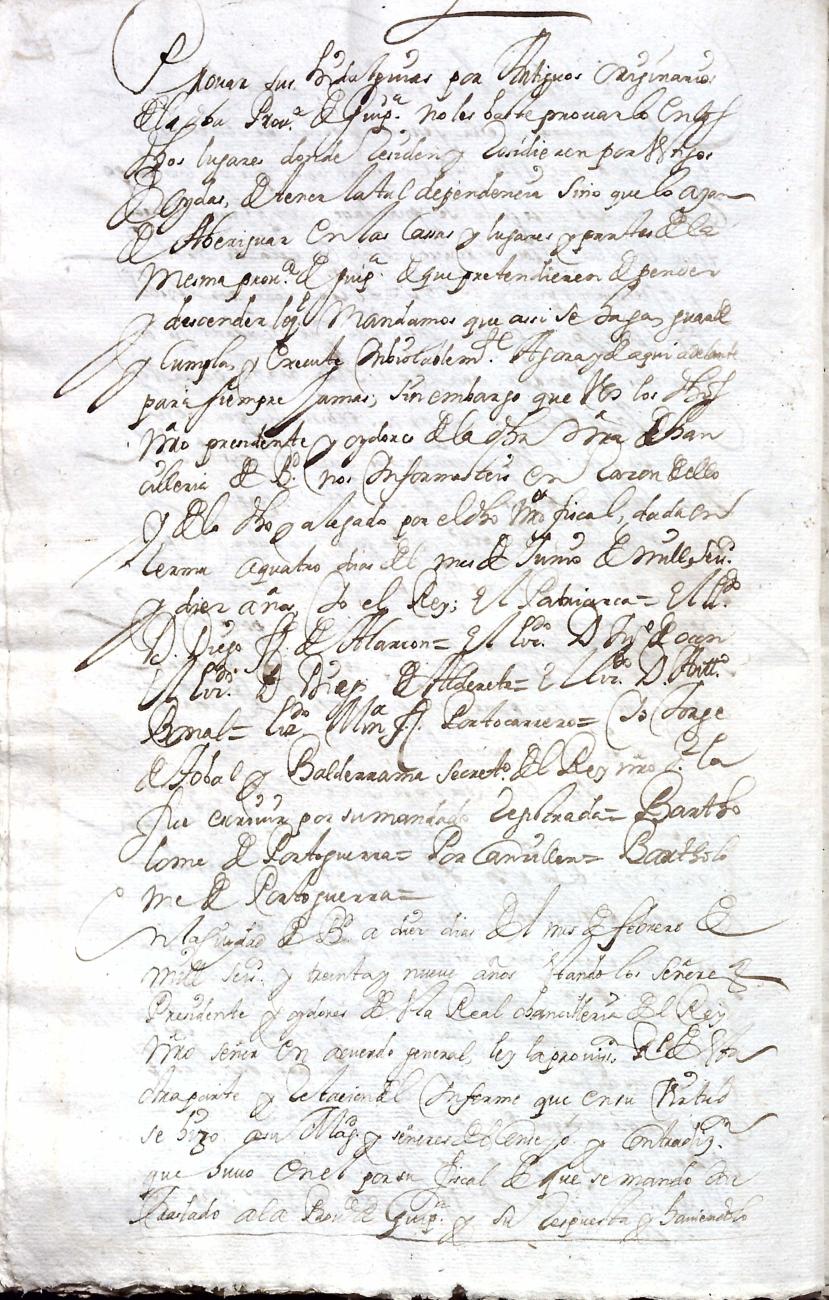 Provar sus hidalguias por Antiguos originarios
de la dha Prov.ª de Guip.ª no les baste provarlo en los
dhos lugares donde residen y residieren por
de oydas, de tener la tal dependencia sino que lo ayan
de Aberiguar en las Casas y lugares y partes de la
mesma prov.ª de guip.ª de que pretendieren depender
y descender lo qual Mandamos que assi se haga, guarde
y Cumpla, y Execute Inbiolablem.te Agora y de aqui adelante
para siempre Jamas, sin embargo que Vos los dhos
nro presidente y oydores de la dha nra Chan
cilleria de B.d nos Informasteis en Razon dello
y de lo dho y alegado por el dho nro fiscal, dada en
lerma a quatro dias del mes de Junio de mill seis.
y diez años, Yo el Rey; El Patriarca= El li.do
D. Diego fr. de Alarcon= El liz.do D
El liz.do D Diego de Aldereta= El liz.do D. Antt.º
Bonal= liz.do Mm fr. Portocarrero= Yo Jorge
de Tobal y Balderrama secret.º del Rey nro s.r la
fice escrivir por su mandado Registrada= Bartho
lome de Portoguerra= Por Canciller= Bartholo
me de Portoguerra=
En la Ciudad de B.d a diez dias del mes de febrero de
mill seis. y treinta y nueve años estando los señores
Presidente y oydores de la Real chancilleria del Rey
nro señor en acuerdo general, ley la provis.on R.l de esta
otra parte y Relacion del Informe que en su Virtud
se hizo a su Mag.d y señores del Consejo y Contradiz.on
que huvo en el por su fiscal de que se mando dar
traslado a la Prov.ª de Guip.ª y su respuesta y haviendolo